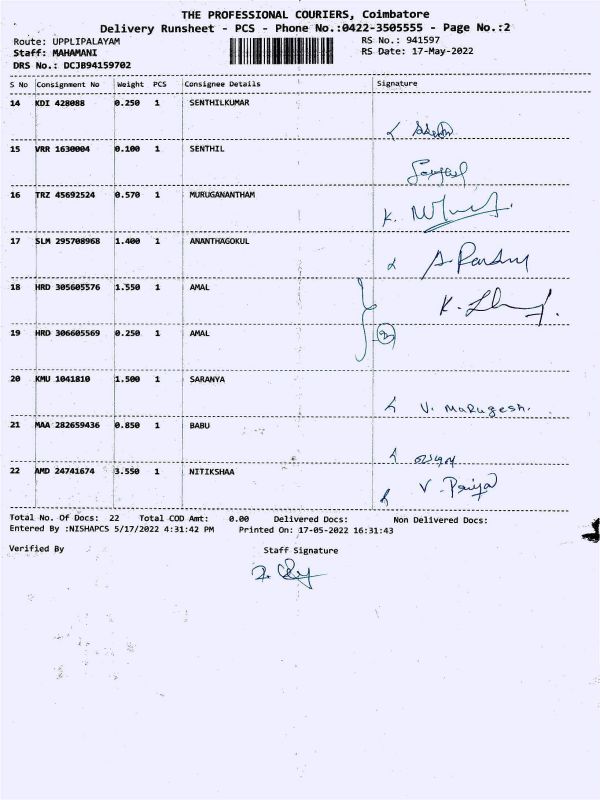 THE PROFESSIONAL COURIERS, Coimbatore
Delivery Runsheet - PCS - Phone No.:0422-3505555 - Page No.:2
Route: UPPLIPALAYAM RS No.: 941597
Staff: MAHAMANI RS Date: 17-May-2022
DRS No.: DCJB94159702
S No Consignment No Weight PCS Consignee Details Signature
14 KDI 428088 0.250 1 SENTHILKUMAR
15 VRR 1630004 0.100 1 SENTHIL
16 TRZ 45692524 0.570 1 MURUGANANTHAM
K.
17 SLM 295708968 1.400 1 ANANTHAGOKUL
18 HRD 305605576 1.550 1 AMAL
K.
19 HRD 306605569 0.250 1 AMAL
2
20 KMU 1041810 1.500 1 SARANYA
V. Marugesh.
21 MAA 282659436 0.850 1 BABU
22 AMD 24741674 3.550 1 NITIKSHAA
V. Priya
Total No. Of Docs: 22 Total COD Amt: 0.00 Delivered Docs: Non Delivered Docs:
Entered By :NISHAPCS 5/17/2022 4:31:42 PM Printed On: 17-05-2022 16:31:43
Verified By Staff Signature